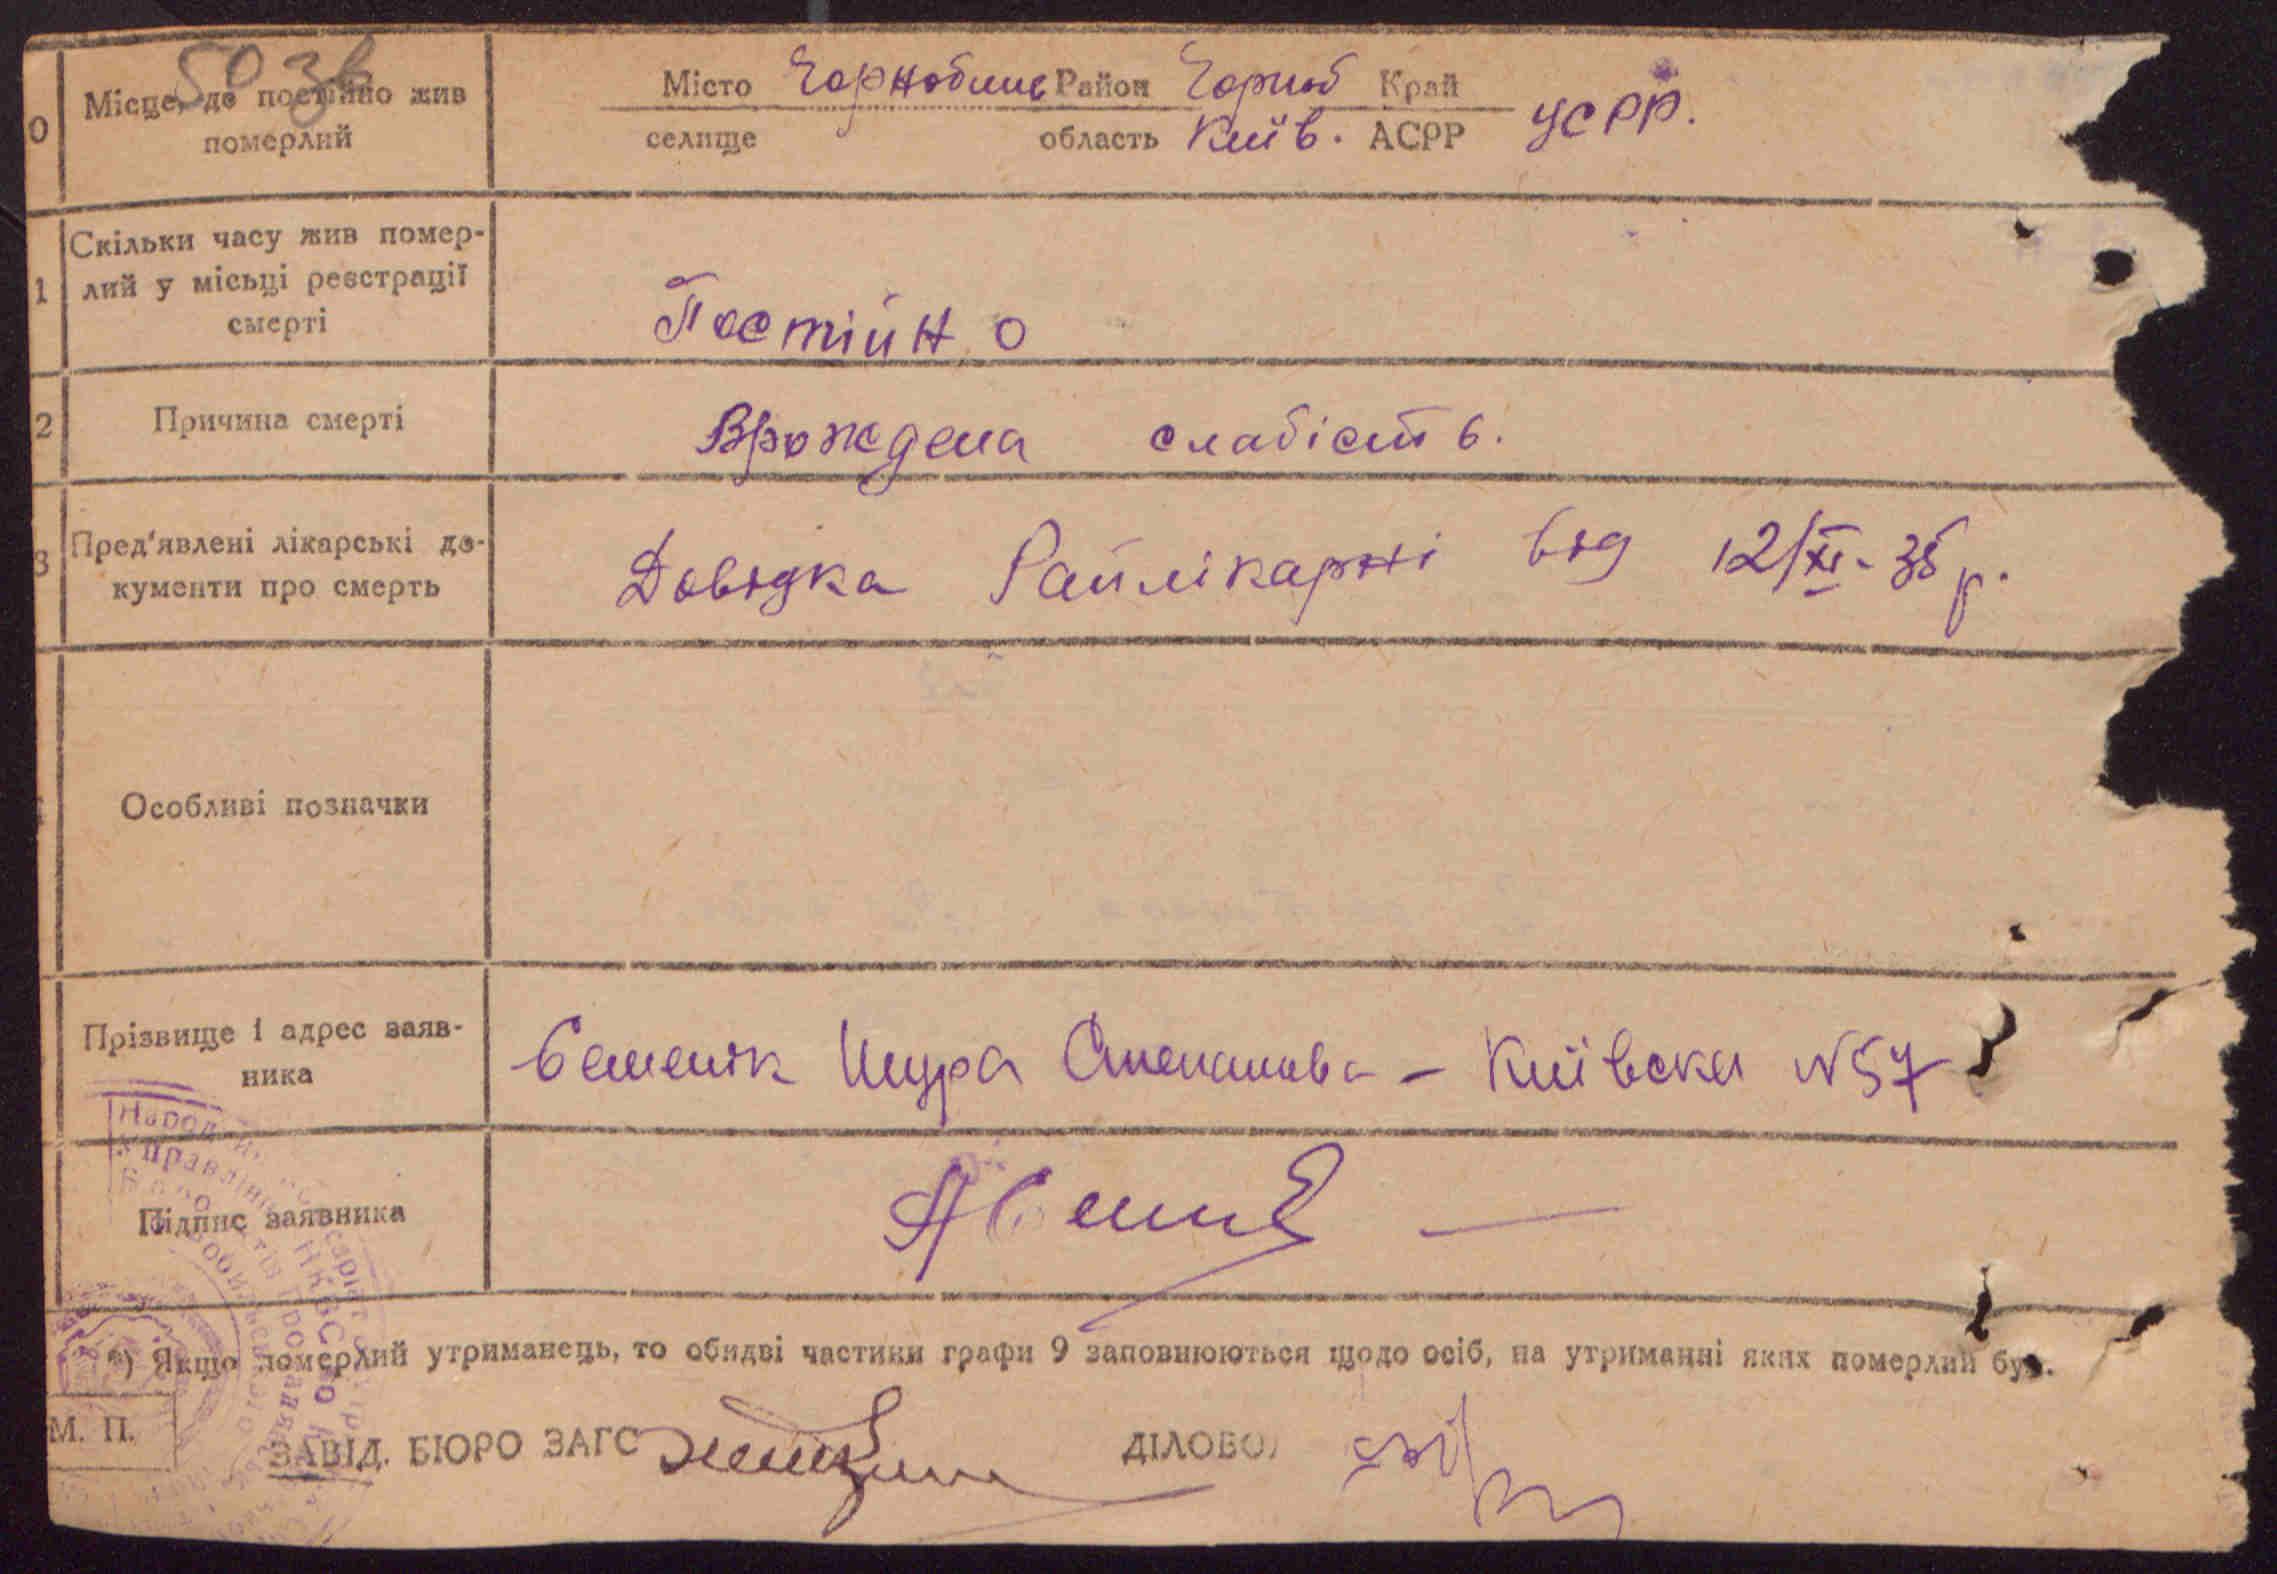 503в
0 Місце, де постійно жив померлий
Місто Чорнобиль Район Чорноб Край УСРР.
селище область Київ. АСРР
1 Скільки часу жив помер-
лий у місьці реєстрації
смерті
Постійно
2 Причина смерті Врождена слабість.
3 Пред'явлені лікарські до-
кументи про смерть
Довідка Райлікарні від 12/XI-35 р.
Особливі позначки
Прізвище і адрес заяв-
ника
Шура Степанівна – Київська N 57
Підпис заявника
*) Якщо померлий утриманець, то обидві частини графи 9 заповнюються щодо осіб, на утриманні яких померлий був.
М. П.
ЗАВІД. БЮРО ЗАГС ДІЛОВОД